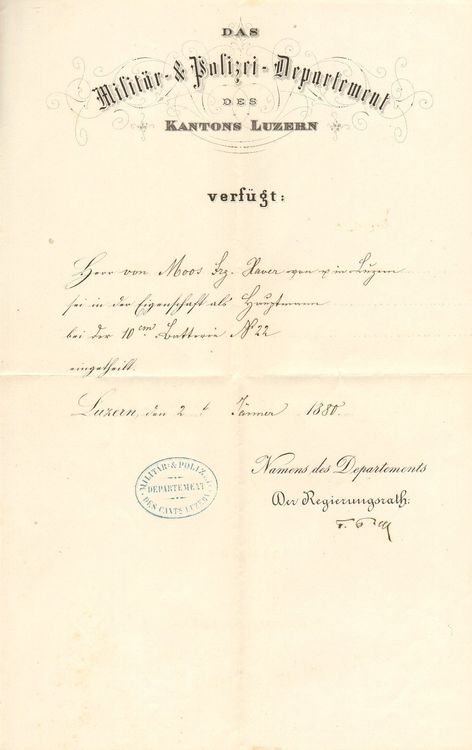 DAS
Militär- & Polizei-Departement
DES
KANTONS LUZERN
verfügt:
Herr von Moos Frz. Xaver von u in Luzern
sei in der Eigenschaft als Hauptmann
bei der 10 cm Batterie No 22
eingetheilt.
Luzern, den 2t Jänner 1880.
Namens des Departements
Der Regierungsrath:
MILITÄR- & POLIZEI-
DEPARTEMENT
DES CANTS LUZERN